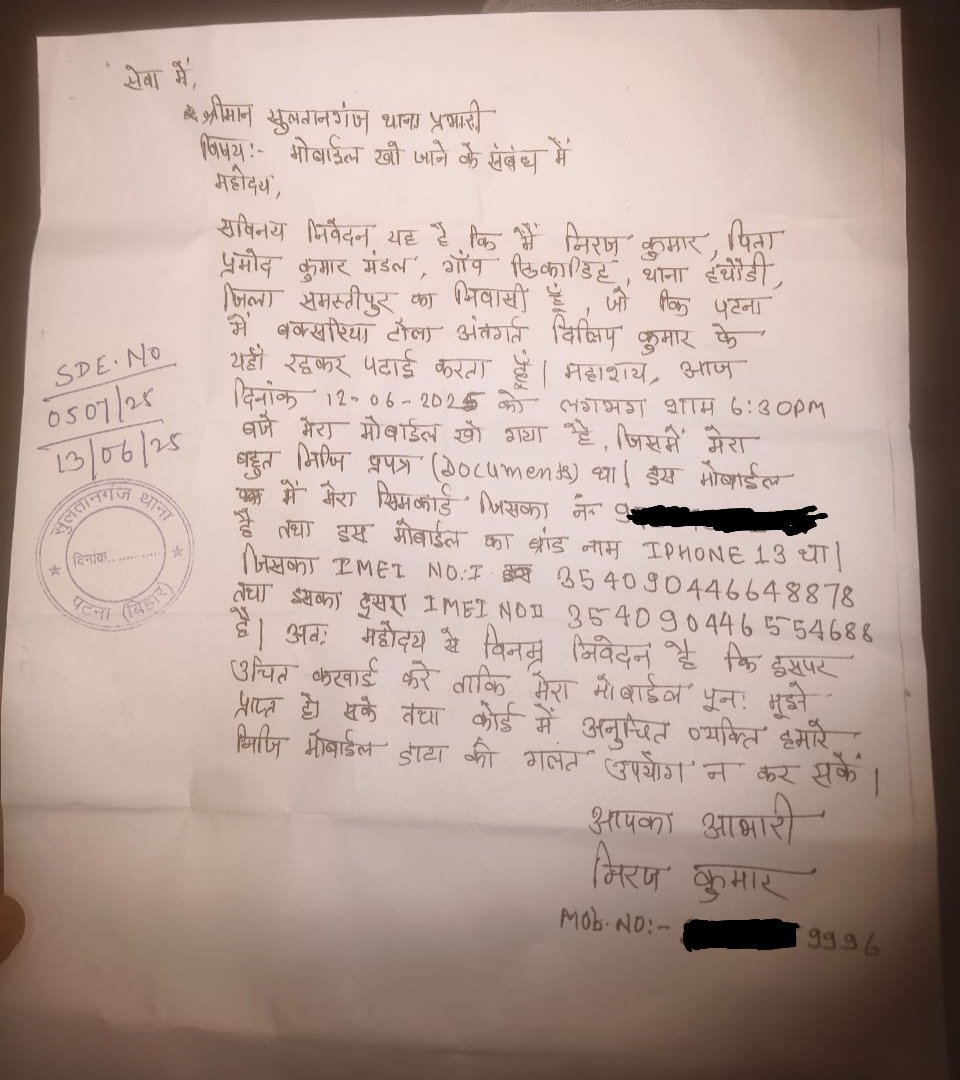 सेवा में,
श्रीमान सुलतानगंज थाना प्रभारी
विषय:- मोबाईल खो जाने के संबंध में
महोदय,
सविनय निवेदन यह है कि मैं निरज कुमार, पिता
प्रमोद कुमार मंडल, गाँव ठिकाडिह, थाना हथौडी,
जिला समस्तीपुर का निवासी हूँ, जो कि पटना
में बक्सरिया टोला अंतर्गत दिलिप कुमार के
यहाँ रहकर पढाई करता हूँ। महाशय, आज
दिनांक 12-06-2025 को लगभग शाम 6:30PM
बजे मेरा मोबाईल खो गया है, जिसमें मेरा
बहुत निजि प्रपत्र (Documents) था। इस मोबाईल
में मेरा सिमकार्ड जिसका नं॰ 9
है तथा इस मोबाईल का ब्रांड नाम IPHONE 13 था।
जिसका IMEI NO:I 354090446648878
तथा इसका दुसरा IMEI NO II 354090446554688
है। अतः महोदय से विनम्र निवेदन है कि इसपर
उचित करवाई करे ताकि मेरा मोबाईल पूनः मूझे
प्राप्त हो सके तथा कोई में अनुचित व्यक्ति हमारे
निजि मोबाईल डाटा को गलत उपयोग न कर सकें।
आपका आभारी
निरज कुमार
Mob.NO:- 9996
SDE.NO
0507/25
13/06/25
सुलतानगंज थाना
दिनांक............
पटना (बिहार)